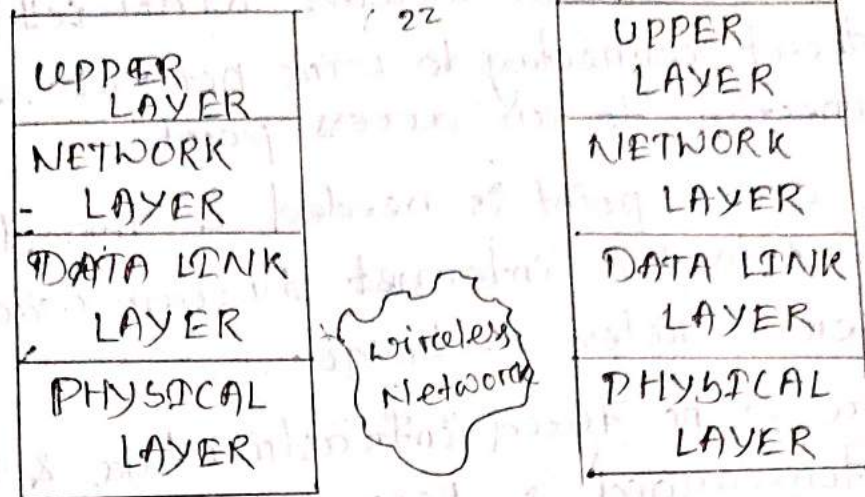 22
UPPER
LAYER
NETWORK
- LAYER
DATA LINK
LAYER
PHYSICAL
LAYER
wireless
Network
UPPER
LAYER
NETWORK
LAYER
DATA LINK
LAYER
PHYSICAL
LAYER